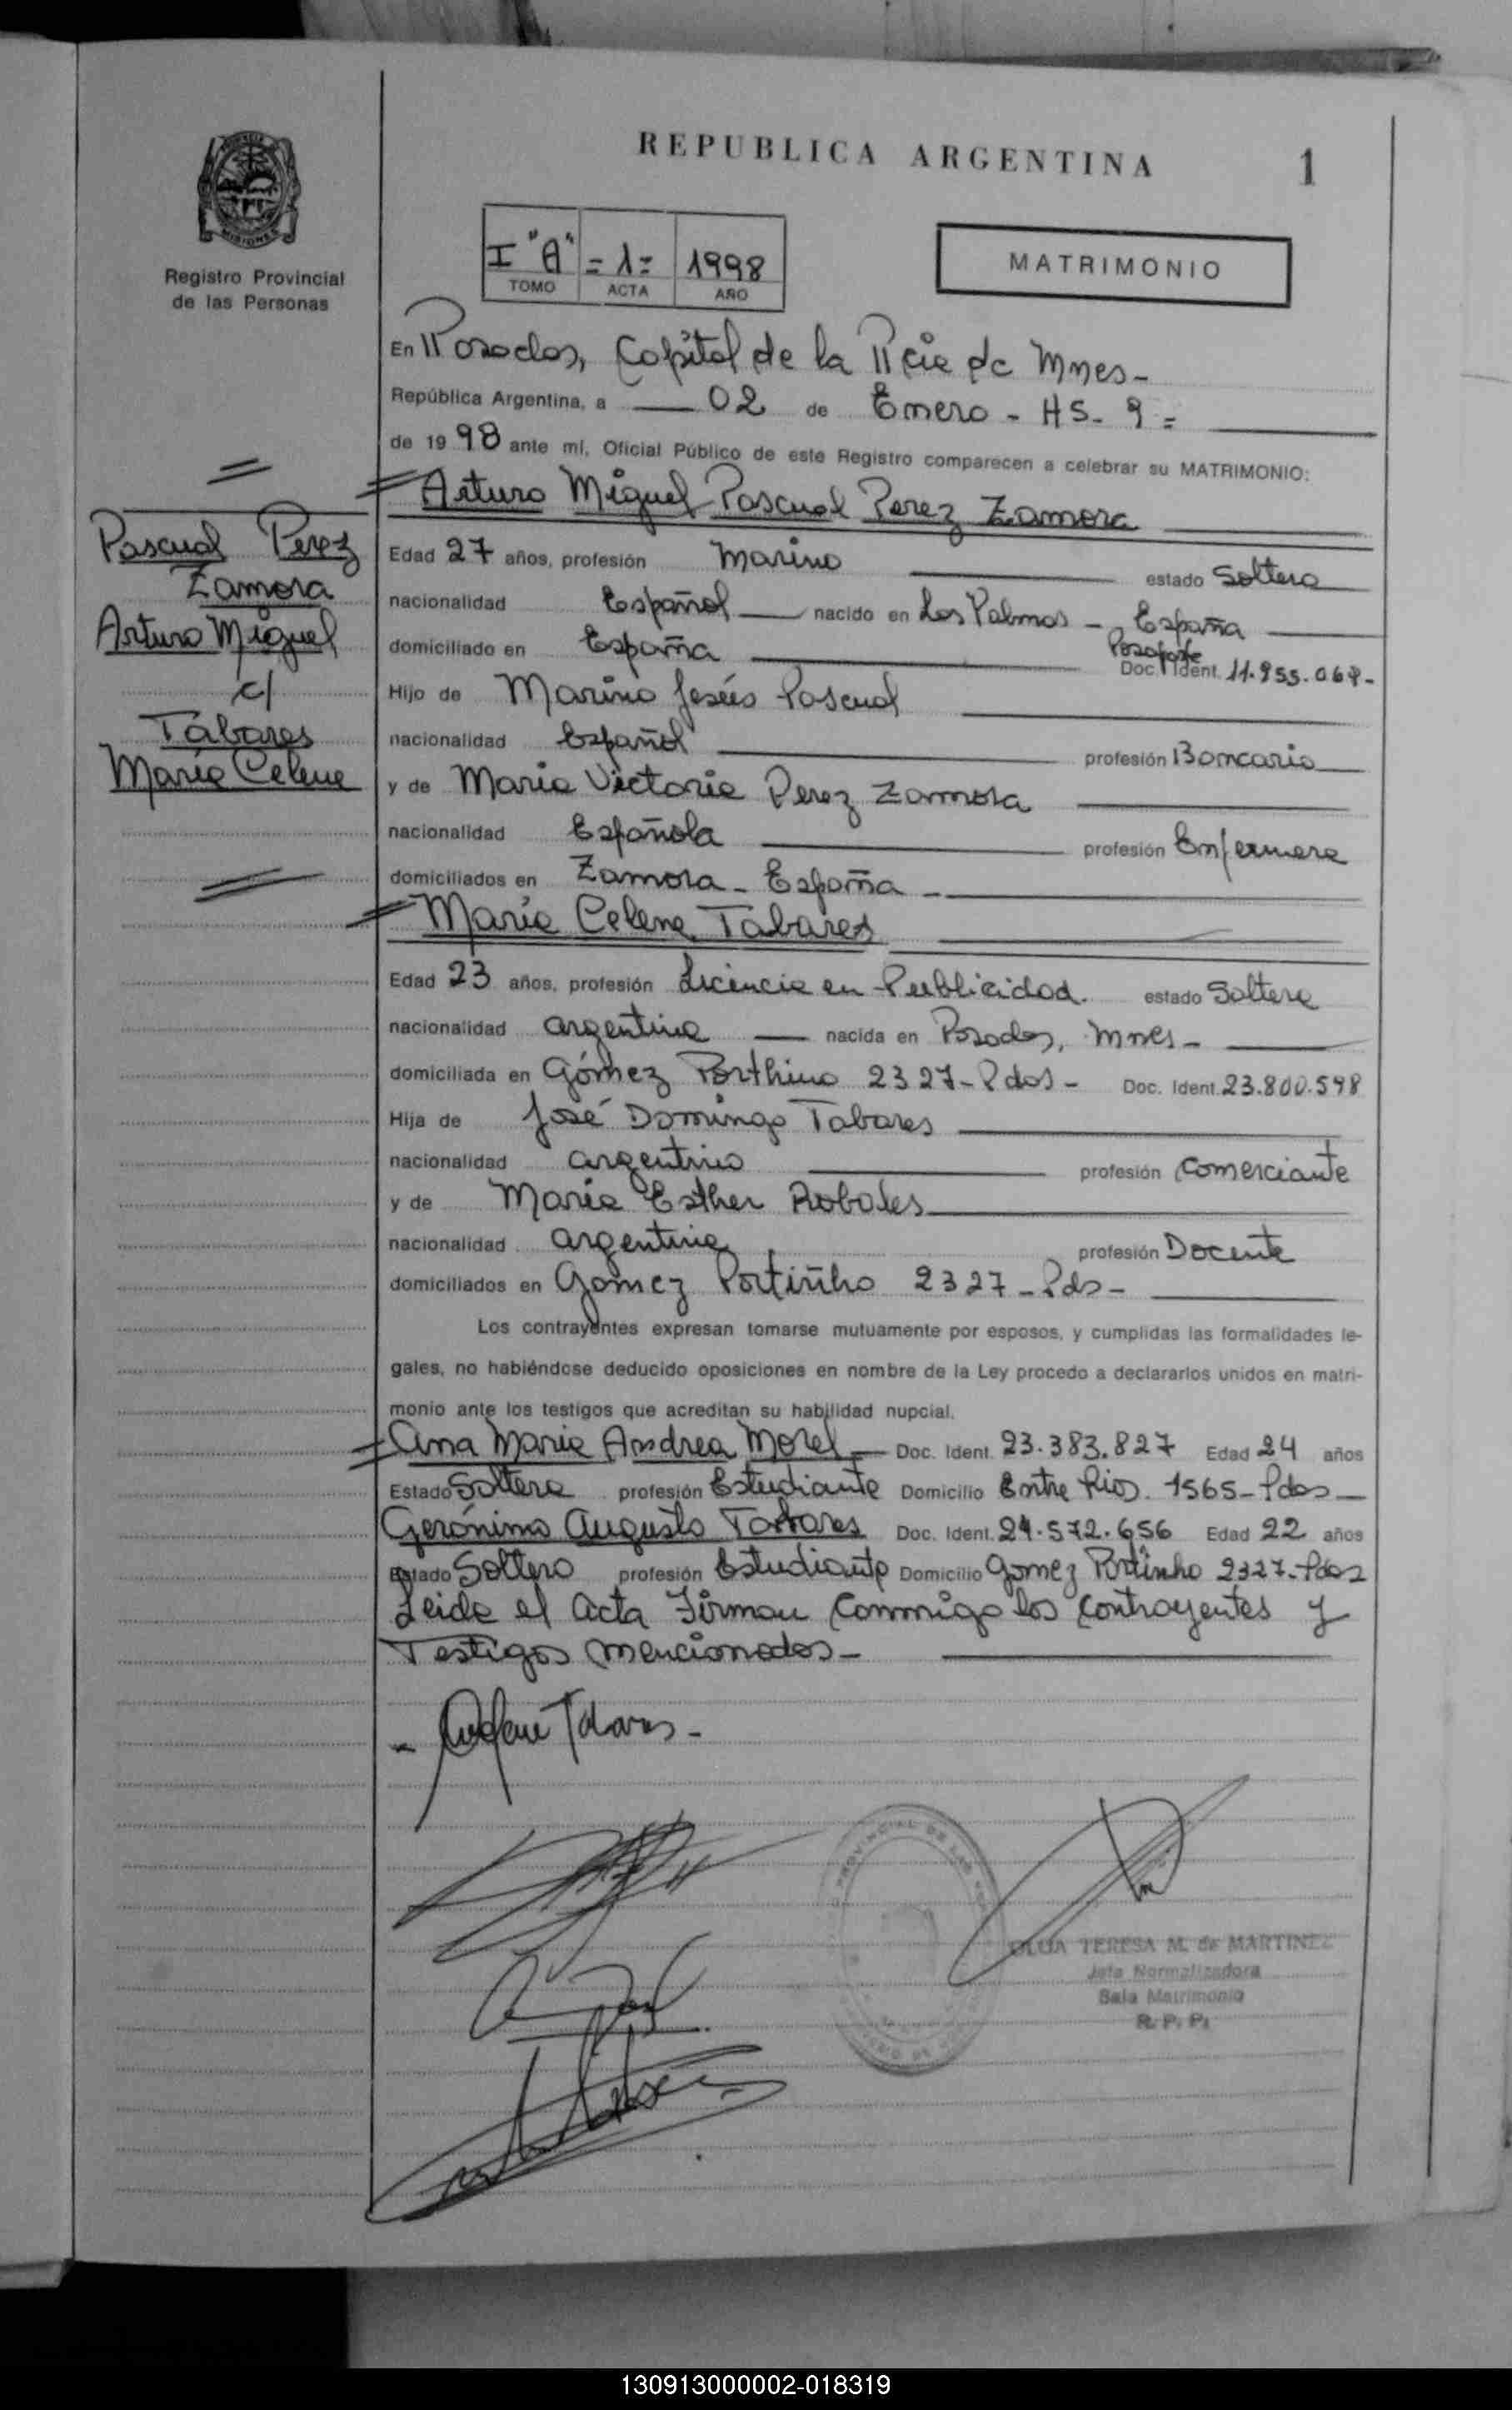 REPUBLICA ARGENTINA
1
MISIONES
Registro Provincial
de las Personas
I "A" = 1 = 1998
TOMO ACTA AÑO
MATRIMONIO
En Posadas, Capital de la Pcia de Mnes-
República Argentina, a 02 de Enero - HS. 9 =
de 1998 ante mí, Oficial Público de este Registro comparecen a celebrar su MATRIMONIO:
Arturo Miguel Pascual Perez Zamora
Edad 27 años, profesión Marino estado Soltero
nacionalidad Español nacido en Las Palmas - España
domiciliado en España Pasaporte Doc. Ident. 11.955.068-
Hijo de Marino Jesús Pascual
nacionalidad Español profesión Bancario
y de Maria Victoria Perez Zamora
nacionalidad Española profesión Enfermera
domiciliados en Zamora - España -
María Celene Tabares
Edad 23 años, profesión Licencia en Publicidad. estado Soltera
nacionalidad argentina nacida en Posadas, Mnes-
domiciliada en Gómez Porthino 2327-Pdas- Doc. Ident. 23.800.598
Hija de José Domingo Tabares
nacionalidad argentino profesión Comerciante
y de María Esther Robales
nacionalidad argentina profesión Docente
domiciliados en Gomez Portiñho 2327-Pds-
Los contrayentes expresan tomarse mutuamente por esposos, y cumplidas las formalidades le-
gales, no habiéndose deducido oposiciones en nombre de la Ley procedo a declararlos unidos en matri-
monio ante los testigos que acreditan su habilidad nupcial.
Ana Maria Andrea Morel Doc. Ident. 23.383.827 Edad 24 años
Estado Soltera profesión Estudiante Domicilio Entre Rios. 1565-Pdas
Gerónimo Augusto Tabares Doc. Ident. 24.572.656 Edad 22 años
Estado Soltero profesión Estudiante Domicilio Gomez Portinho 2327-Pdas
Leida el Acta Firman Conmigo los Contrayentes y
Testigos mencionados-
Pascual Perez
Zamora
Arturo Miguel
c/
Tabares
María Celene
TERESA M. de MARTINEZ
Jefa Normalizadora
Sala Matrimonio
R. P. P.
130913000002-018319